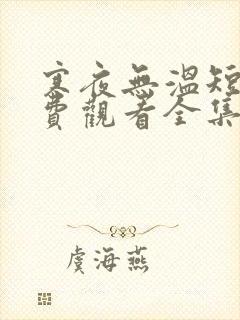 寒夜無溫短
費觀看全集
虞海燕